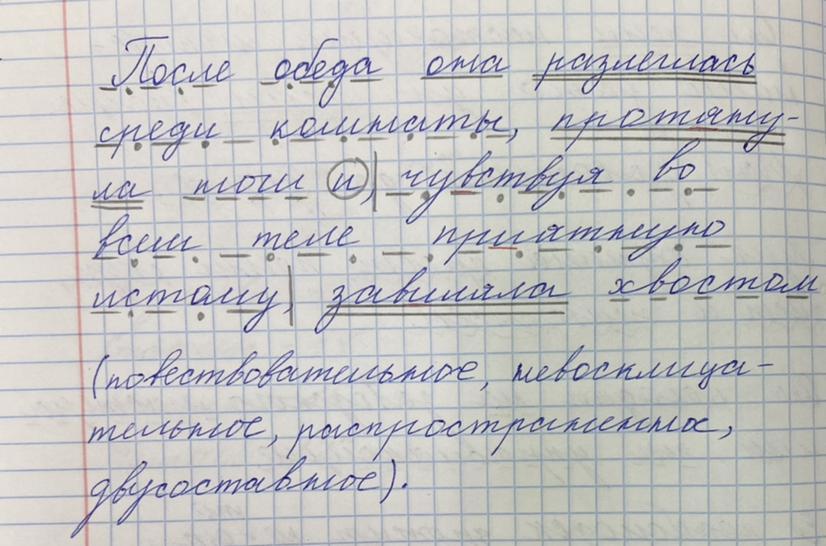 После обеда она разлеглась
среди комнаты, протяну-
ла ноги и, чувствуя во
всем теле приятную
истому, завиляла хвостом
(повествовательное, невосклица-
тельное, распространенная,
двусоставное).